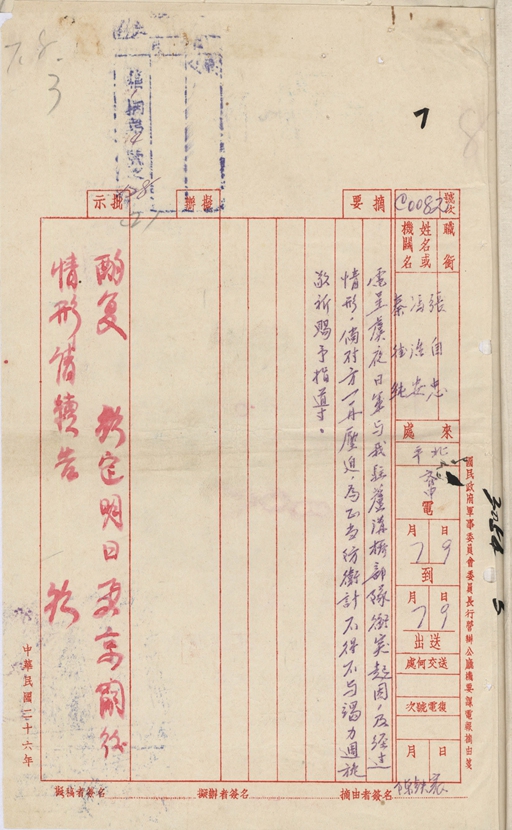 國民政府軍事委員會委員長行營辦公廳機要課電報摘由箋
號次
C0082
職銜
姓名或機關名
張自忠
馮治安
秦德純
來處
北平
電
7月9日
到
7月9日
送出
送交何處
復電號次
月 日
摘要
電呈虞夜日軍與我駐蘆溝橋部隊衝突起因,及經過
情形,倘對方一再壓迫,為正當防衛計不得不与竭力週旋
敬祈賜予指導。
擬辦
批示
情形請續告
中華民國二十六年
摘由者簽名
擬辦者簽名
擬稿者簽名
7.8.
3
7
8